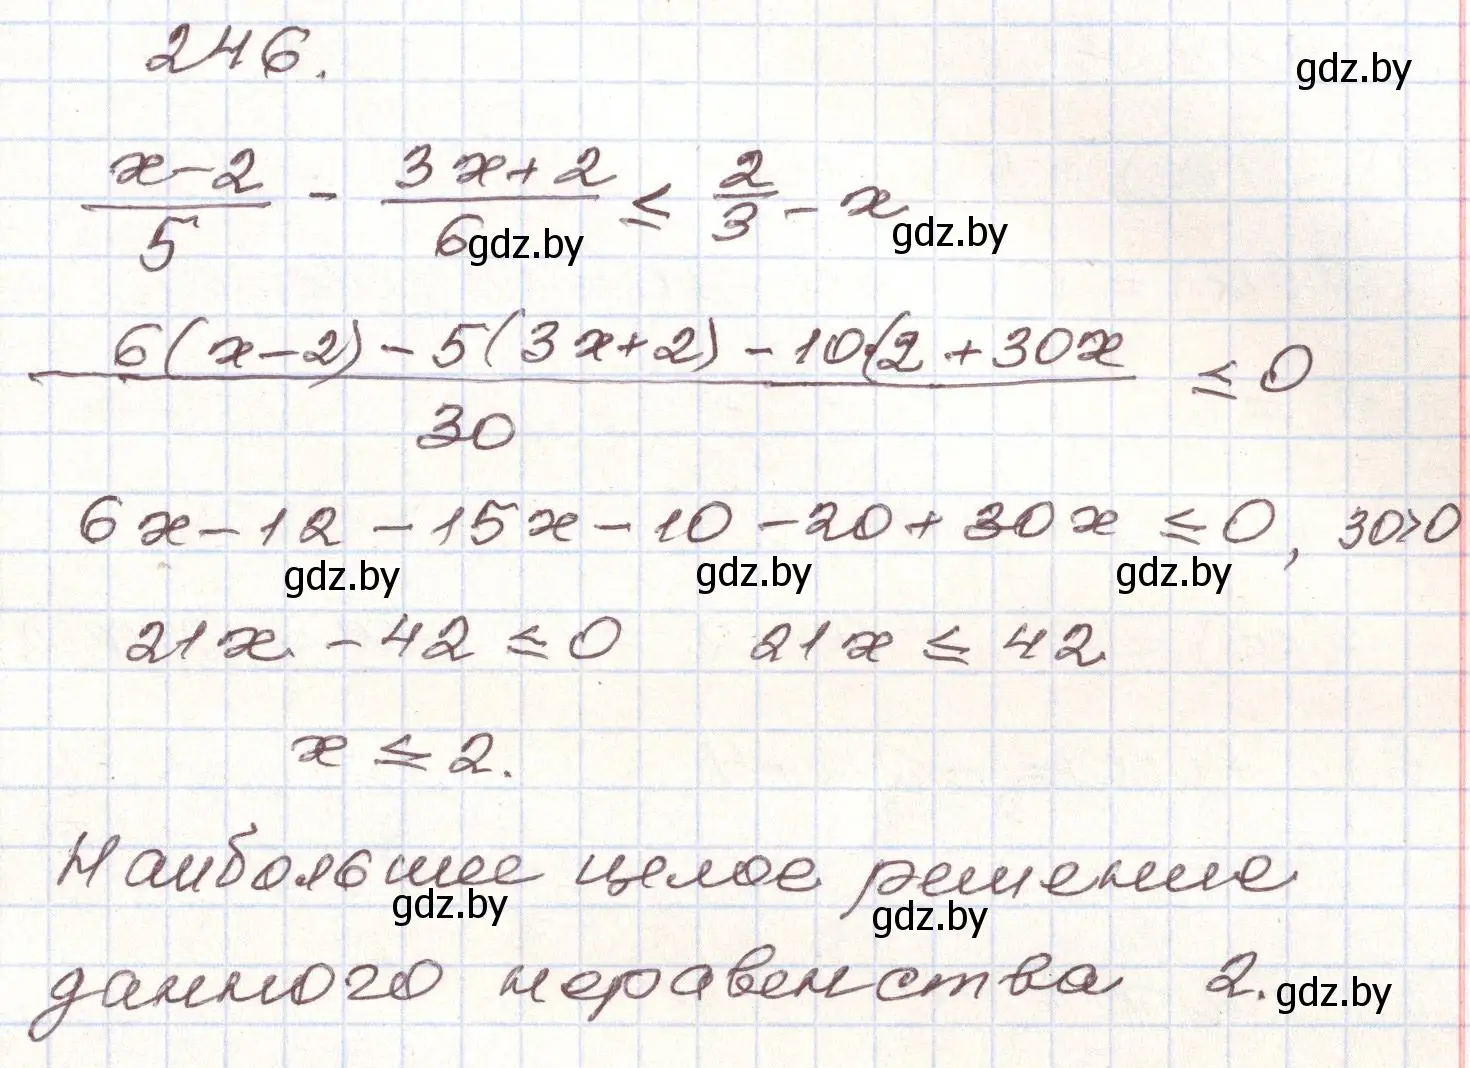 246.
gdz.by
x-2/5 - 3x+2/6 ≤ 2/3 - x
gdz.by gdz.by
6(x-2)-5(3x+2)-10·(2+30x/30 ≤ 0
6x-12-15x-10-20+30x ≤ 0, 30>0
gdz.by gdz.by gdz.by
21x - 42 ≤ 0 21x ≤ 42
x ≤ 2.
Наибольшее целое решение
gdz.by gdz.by
данного неравенства 2.
gdz.by